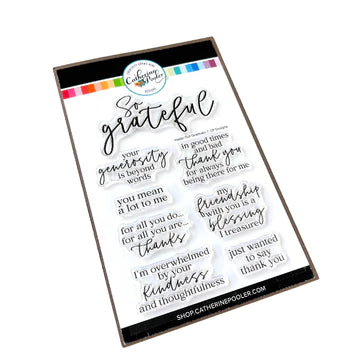 Catherine
Pooler
So
grateful
your
generosity
is beyond
words
in good times
and bad
thank you
for always
being there for me
you mean
a lot to me
my
friendship
with you is a
blessing
I treasure
for all you do...
for all you are...
thanks
I'm overwhelmed
by your
kindness
and thoughtfulness
just wanted
to say
thank you
SHOP.CATHERINEPOOLER.COM